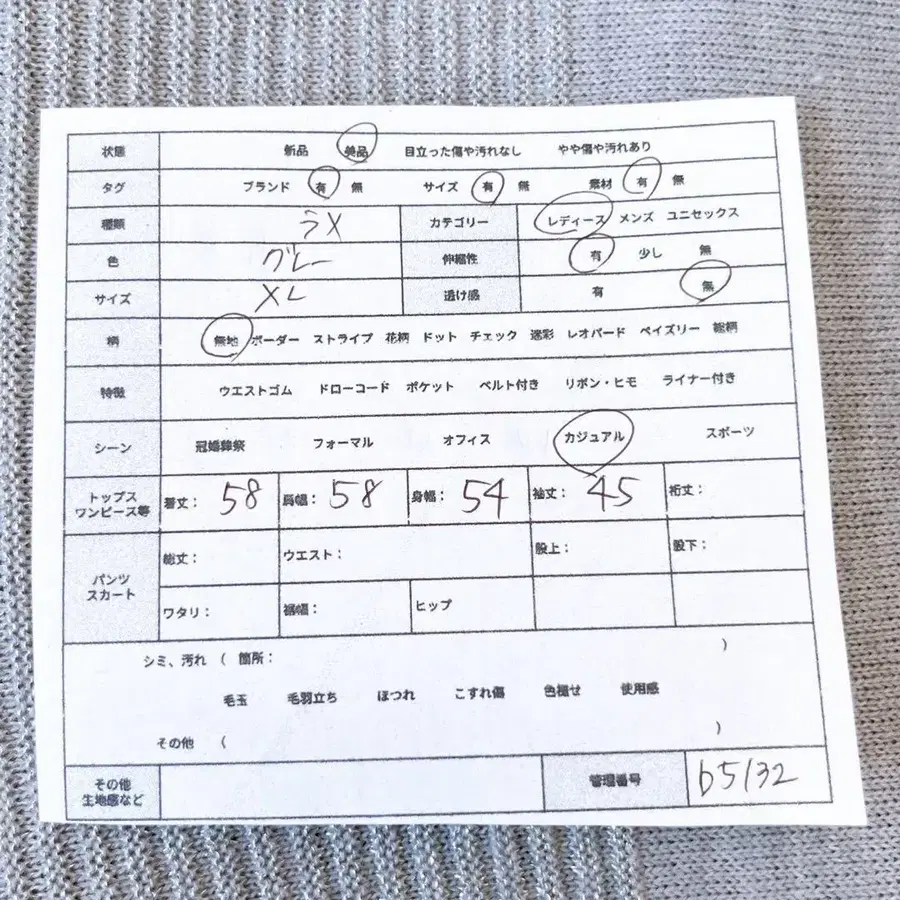 状態 新品 美品 目立った傷や汚れなし やや傷や汚れあり
タグ ブランド 有 無 サイズ 有 無 素材 有 無
種類 ラメ カテゴリー レディース メンズ ユニセックス
色 グレー 伸縮性 有 少し 無
サイズ XL 透け感 有 無
柄 無地 ボーダー ストライプ 花柄 ドット チェック 迷彩 レオパード ペイズリー 総柄
特徴 ウエストゴム ドローコード ポケット ベルト付き リボン・ヒモ ライナー付き
シーン 冠婚葬祭 フォーマル オフィス カジュアル スポーツ
トップス
ワンピース等 着丈: 58 肩幅: 58 身幅: 54 袖丈: 45 裄丈:
パンツ
スカート 総丈: ウエスト: 股上: 股下:
ワタリ: 裾幅: ヒップ
シミ、汚れ ( 箇所: )
毛玉 毛羽立ち ほつれ こすれ傷 色褪せ 使用感
その他 ( )
その他
生地感など 管理番号 b5132